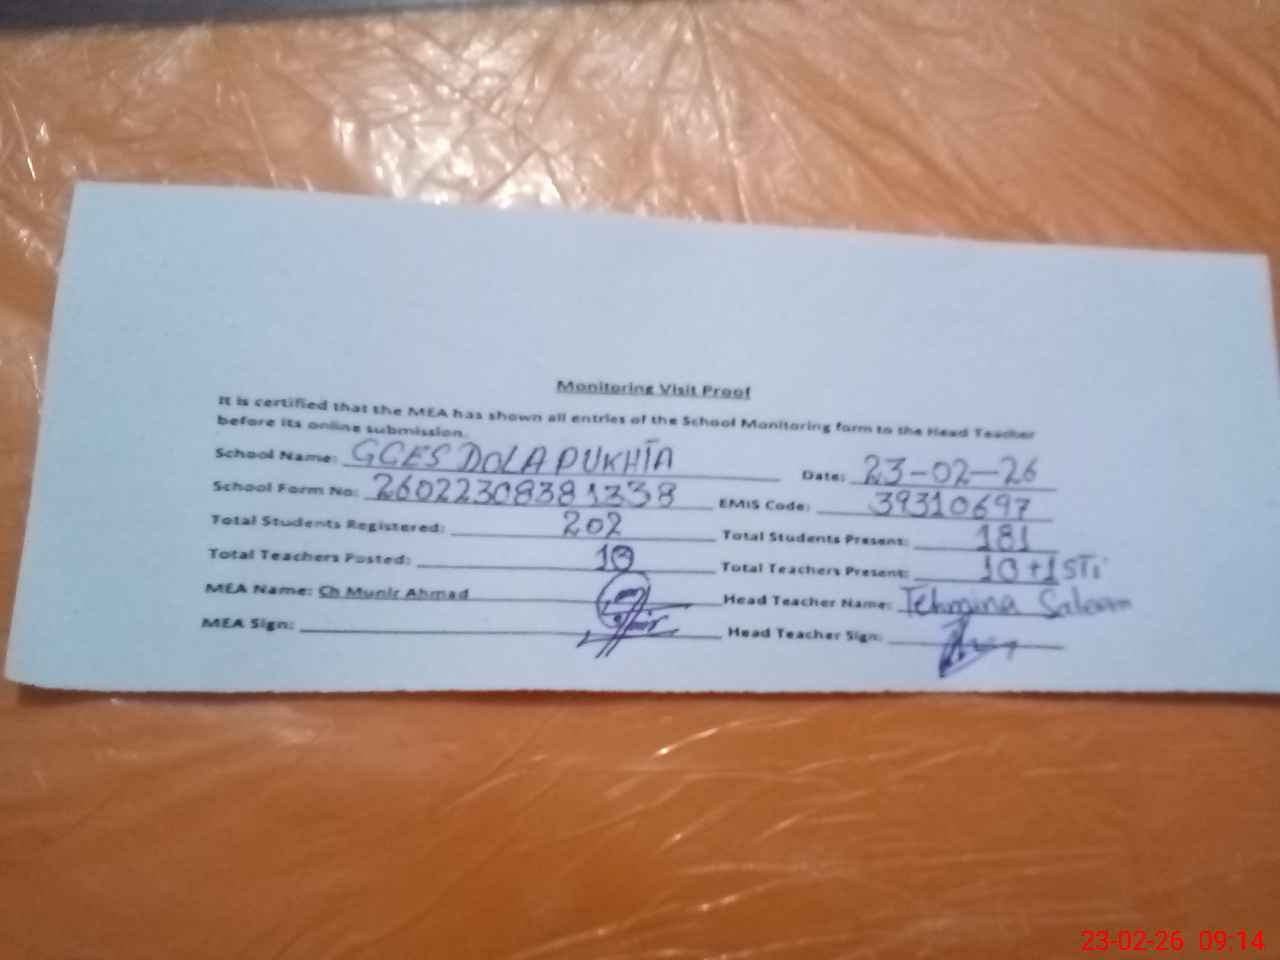 Monitoring Visit Proof
It is certified that the MEA has shown all entries of the School Monitoring form to the Head Teacher
before its online submission.
School Name: GGES DOLA PUKHTA Date: 23-02-26
School Form No: 26022308381338 EMIS Code: 39310697
Total Students Registered: 202 Total Students Present: 181
Total Teachers Posted: Total Teachers Present: 10+1STi
MEA Name: Ch Munir Ahmad Head Teacher Name: Tehmina Saleem
MEA Sign: Head Teacher Sign:
23-02-26 09:14